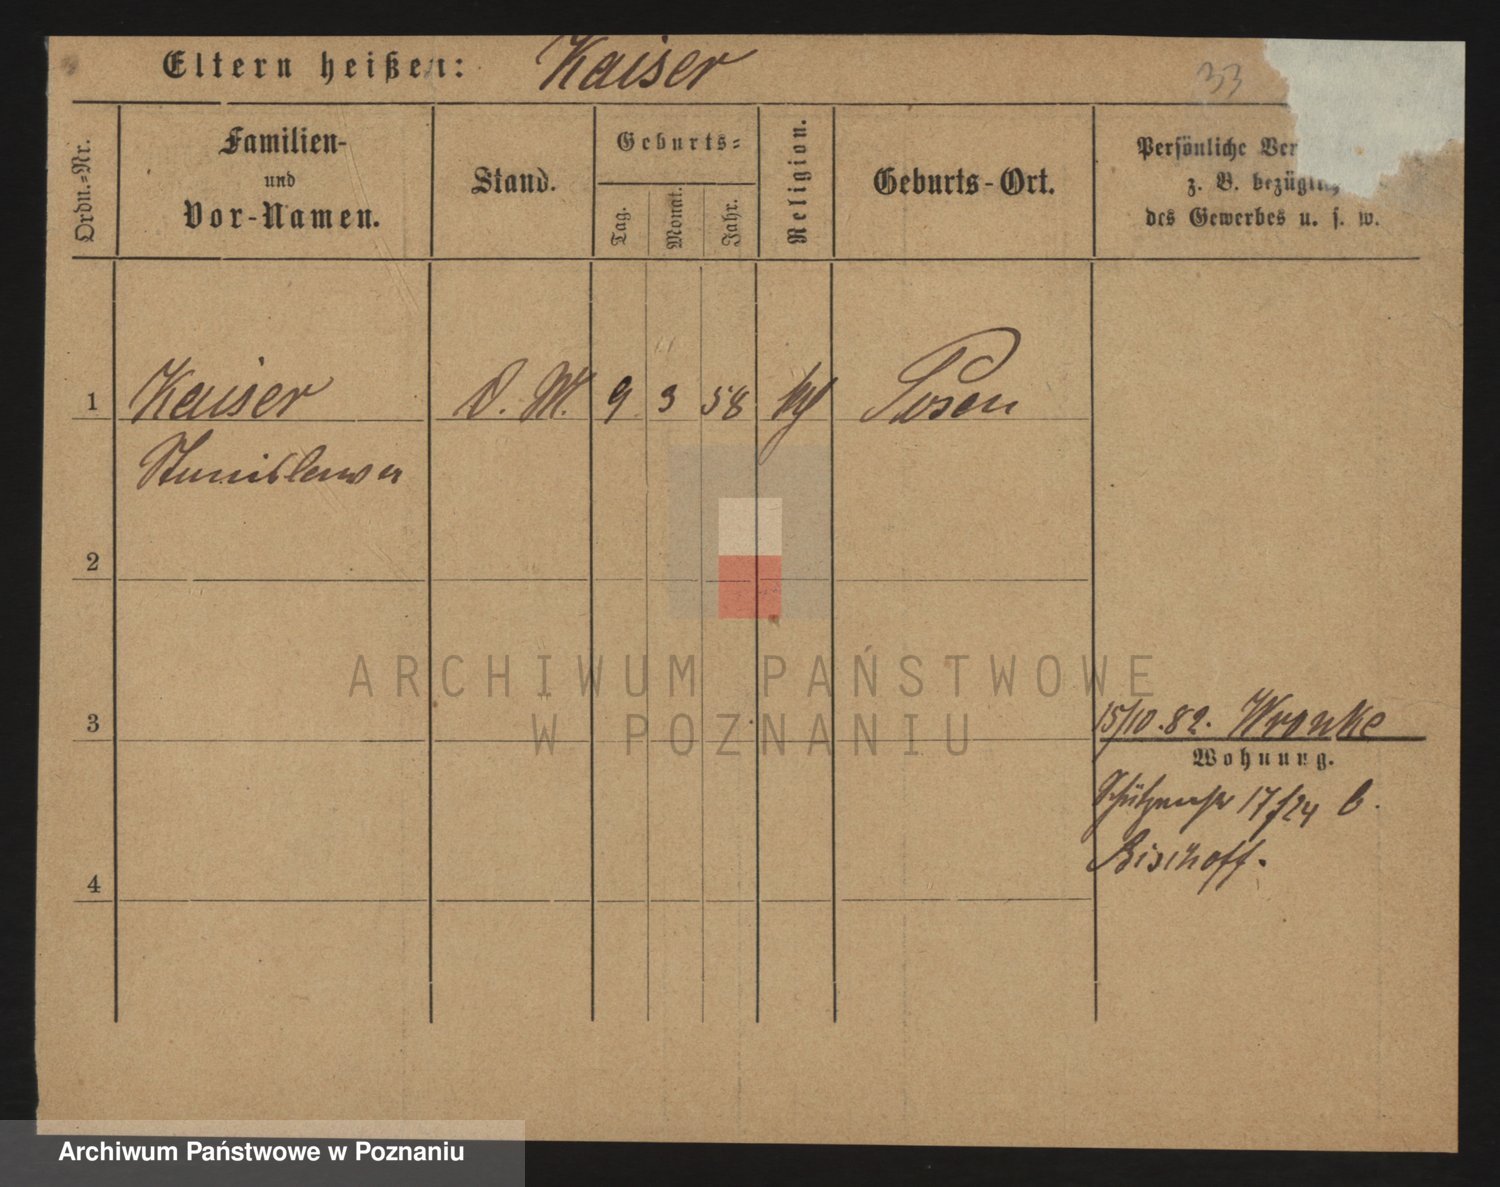 Eltern heißen: Kaiser
33
Ordn.-Nr.
Familien-
und
Vor-Namen.
Stand.
Geburts-
Tag.
Monat.
Jahr.
Religion.
Geburts-Ort.
Persönliche Ver
z. B. bezügli
des Gewerbes u. s. w.
1 Kaiser D. M. 9 3 58 Posen
Stanislawa
2
3
4
15/10.82. Wronke
Wohnung.
17/24 b.
Bischoff.
ARCHIWUM PAŃSTWOWE
W POZNANIU
Archiwum Państwowe w Poznaniu